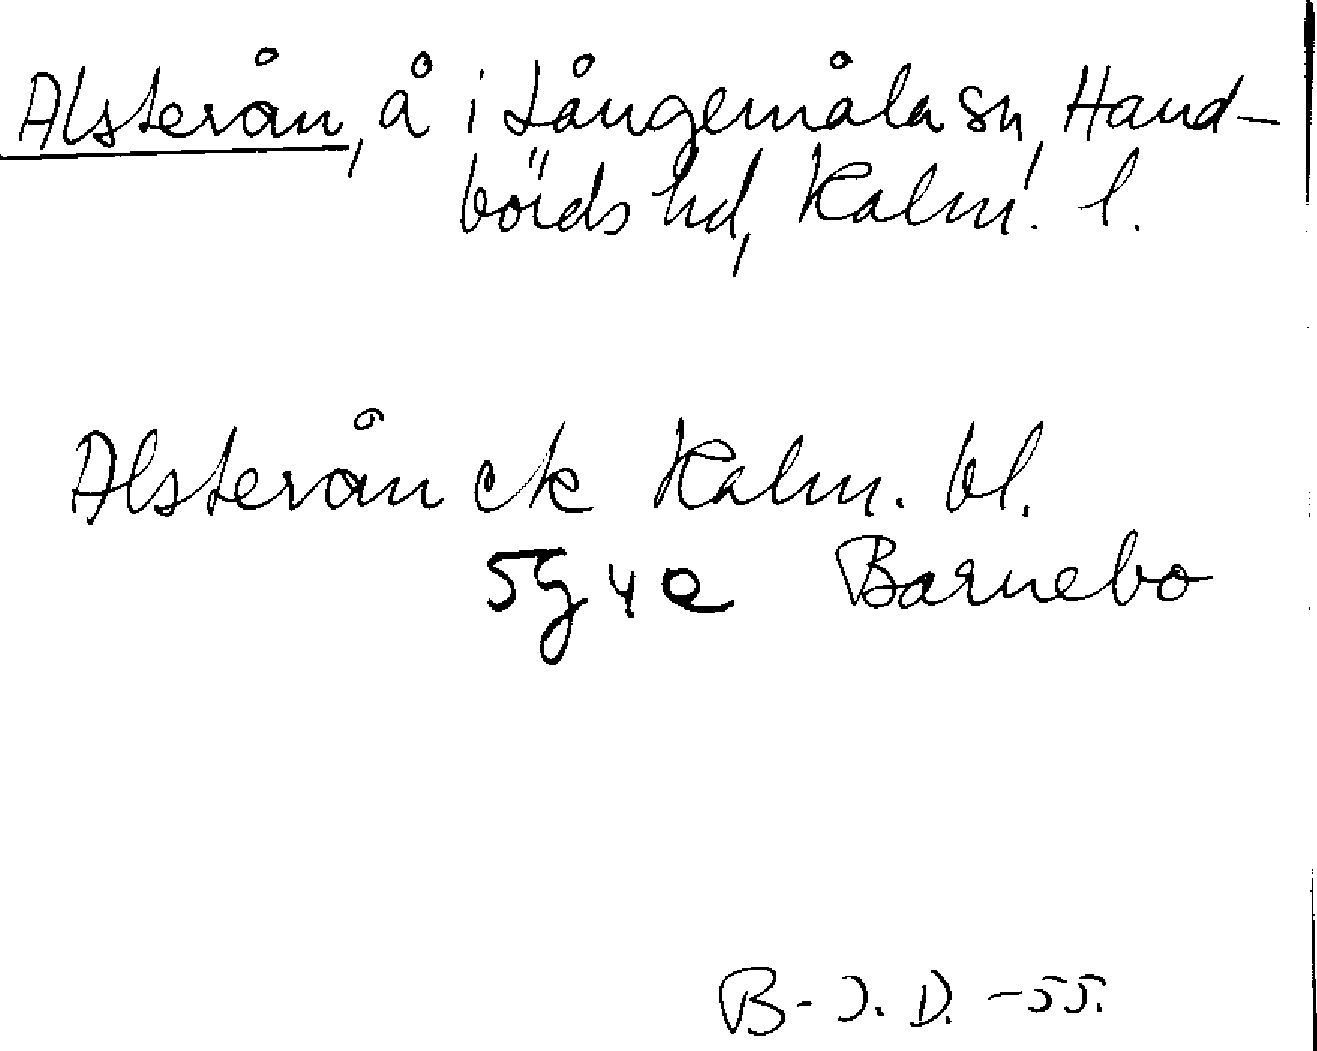 Alsterån, å i Långemåla sn, Hand-
börds hd, Kalm. l.
Alsterån ek Kalm. bl.
5g4e Barnebo
B-I. D. -55.